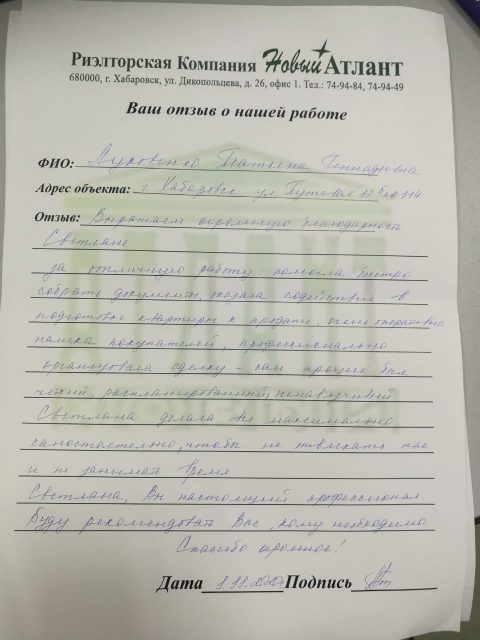 Риэлторская Компания Новый Атлант
680000, г. Хабаровск, ул. Дикопольцева, д. 26, офис 1. Тел.: 74-94-84, 74-94-49
Ваш отзыв о нашей работе
ФИО: Татьяна Геннадьевна
Адрес объекта: г. Хабаровск ул Путевая
Отзыв: Выражаем огромную благодарность
Светлане
за отличную работу: помогла быстро
собрать документы, оказала содействие в
подготовке квартиры к продаже, очень оперативно
нашла покупателей, профессионально
организовала сделку - сам процесс был
четкий, распланированный, ненавязчивый
Светлана делала все максимально
самостоятельно, чтобы не отвлекать нас
и не занимать время.
Светлана, Вы настоящий профессионал.
Буду рекомендовать Вас, кому необходимо.
Спасибо огромное!
Дата 1.11.2020г Подпись